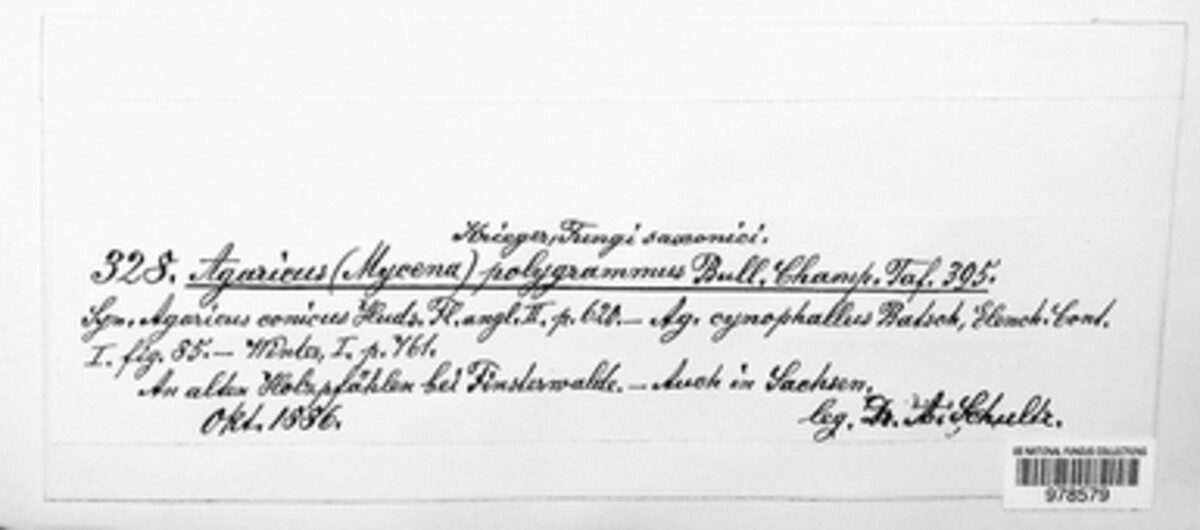 Krieger, Fungi saxonici.
328. Agaricus (Mycena) polygrammus Bull. Champ. Taf. 395.
Syn. Agaricus conicus Huds. Fl. angl. II. p. 620. — Ag. cynophallus Batsch, Elench. Cont.
I. fig. 85. — Winter, I. p. 761.
An alten Holzpfählen bei Finsterwalde. — Auch in Sachsen.
Okt. 1886.
leg. Dr. A. Schultz.
US NATIONAL FUNGUS COLLECTIONS
978579